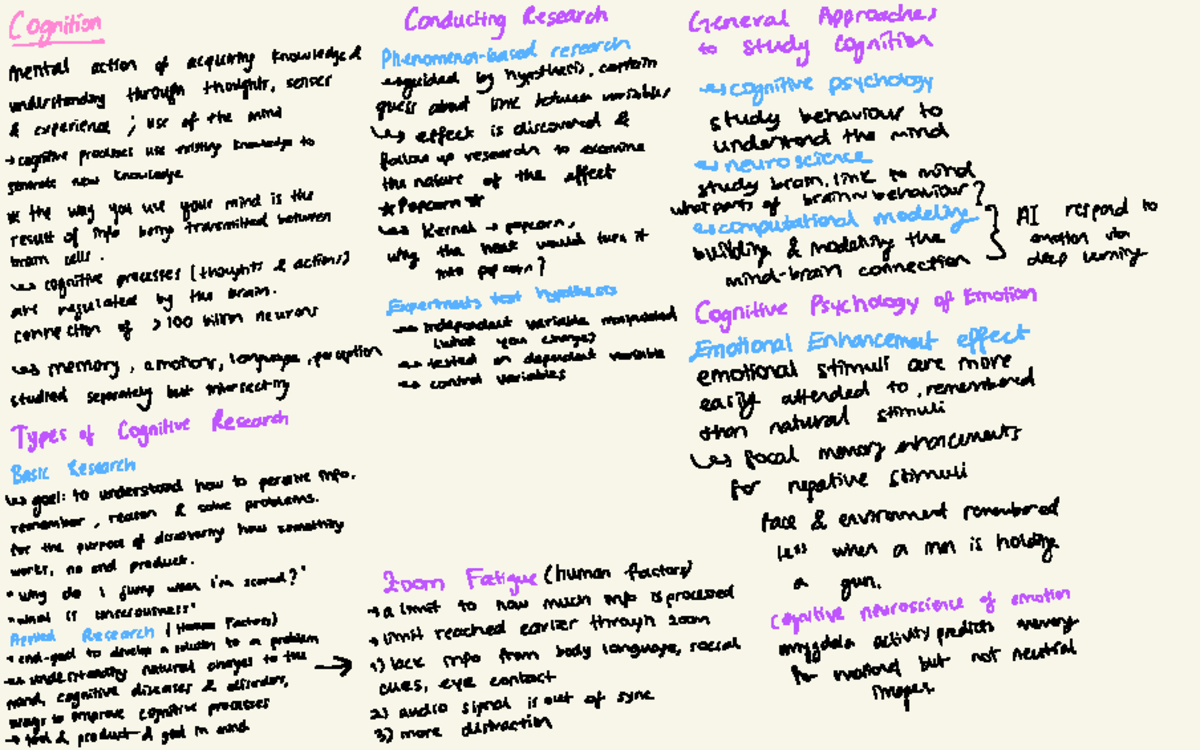 Cognition
mental action of acquiring knowledge &
understanding through thoughts, senses
& experience ; use of the mind
→ cognitive processes use existing knowledge to
generate new knowledge
* the way you use your mind is the
result of info being transmitted between
brain cells.
↳ cognitive processes (thoughts & actions)
are regulated by the brain.
connection of >100 billion neurons
↳ memory, emotions, language, perception
studied separately but intersecting
Types of Cognitive Research
Basic Research
↳ goal: to understand how to perceive info,
remember, reason & solve problems.
for the purpose of discovering how something
works, no end product.
"why do i jump when i'm scared?"
"what is unsciousness"
Applied Research (Human Factors)
→ end-goal to develop a solution to a problem
→ understanding natural changes to the
mind, cognitive diseases & disorders,
ways to improve cognitive processes
→ tool & product & goal in mind
Conducting Research
Phenomenon-based research
→ guided by hypothesis, certain
guess about link between variables
↳ effect is discovered &
follow up research to examine
the nature of the effect
★ Popcorn ★
↳ kernel → popcorn,
why the heat would turn it
into popcorn?
Experiments test hypothesis
→ independent variable manipulated
(what you change)
→ tested on dependent variable
→ control variables
Zoom Fatigue (human factors)
→ a limit to how much info is processed
→ limit reached earlier through zoom
1) lack info from body language, social
cues, eye contact
2) audio signal is out of sync
3) more distraction
General Approaches
to study cognition
→ cognitive psychology
study behaviour to
understand the mind
→ neuroscience
study brain, link to mind
what parts of brain → behaviour?
→ computational modeling
building & modeling the
mind-brain connection
AI respond to
emotion via
deep learning
Cognitive Psychology of Emotion
Emotional Enhancement effect
emotional stimuli are more
easily attended to, remembered
than natural stimuli
↳ focal memory enhancements
for negative stimuli
face & environment remembered
less when a mn is holding
a gun.
cognitive neuroscience of emotion
amygdala activity predicts memory
for emotional but not neutral
images.